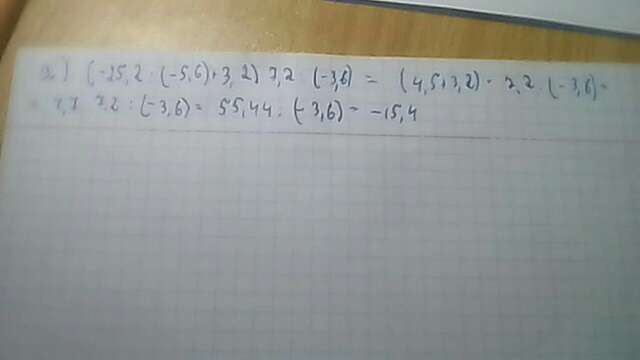 а) (-25,2 : (-5,6)+3,2) 7,2 : (-3,6) = (4,5+3,2) · 7,2 : (-3,6) =
= 7,7 7,2 : (-3,6) = 55,44 : (-3,6) = -15,4